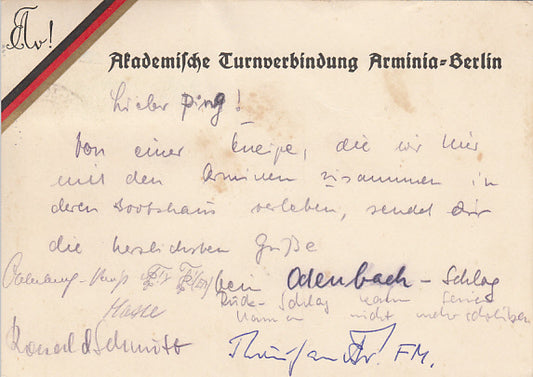 Av!
Akademische Turnverbindung Arminia-Berlin
Lieber Ping!
Von einer Kneipe, die wir hier
mit den Arminen zusammen in
deren Bootshaus verleben, sendet Dir
die herzlichsten Grüße
Odenbach - Schlag
Rüde- Schlag kann seinen
Namen nicht mehr schreiben
Hasse
Konrad Schmidt
FM.